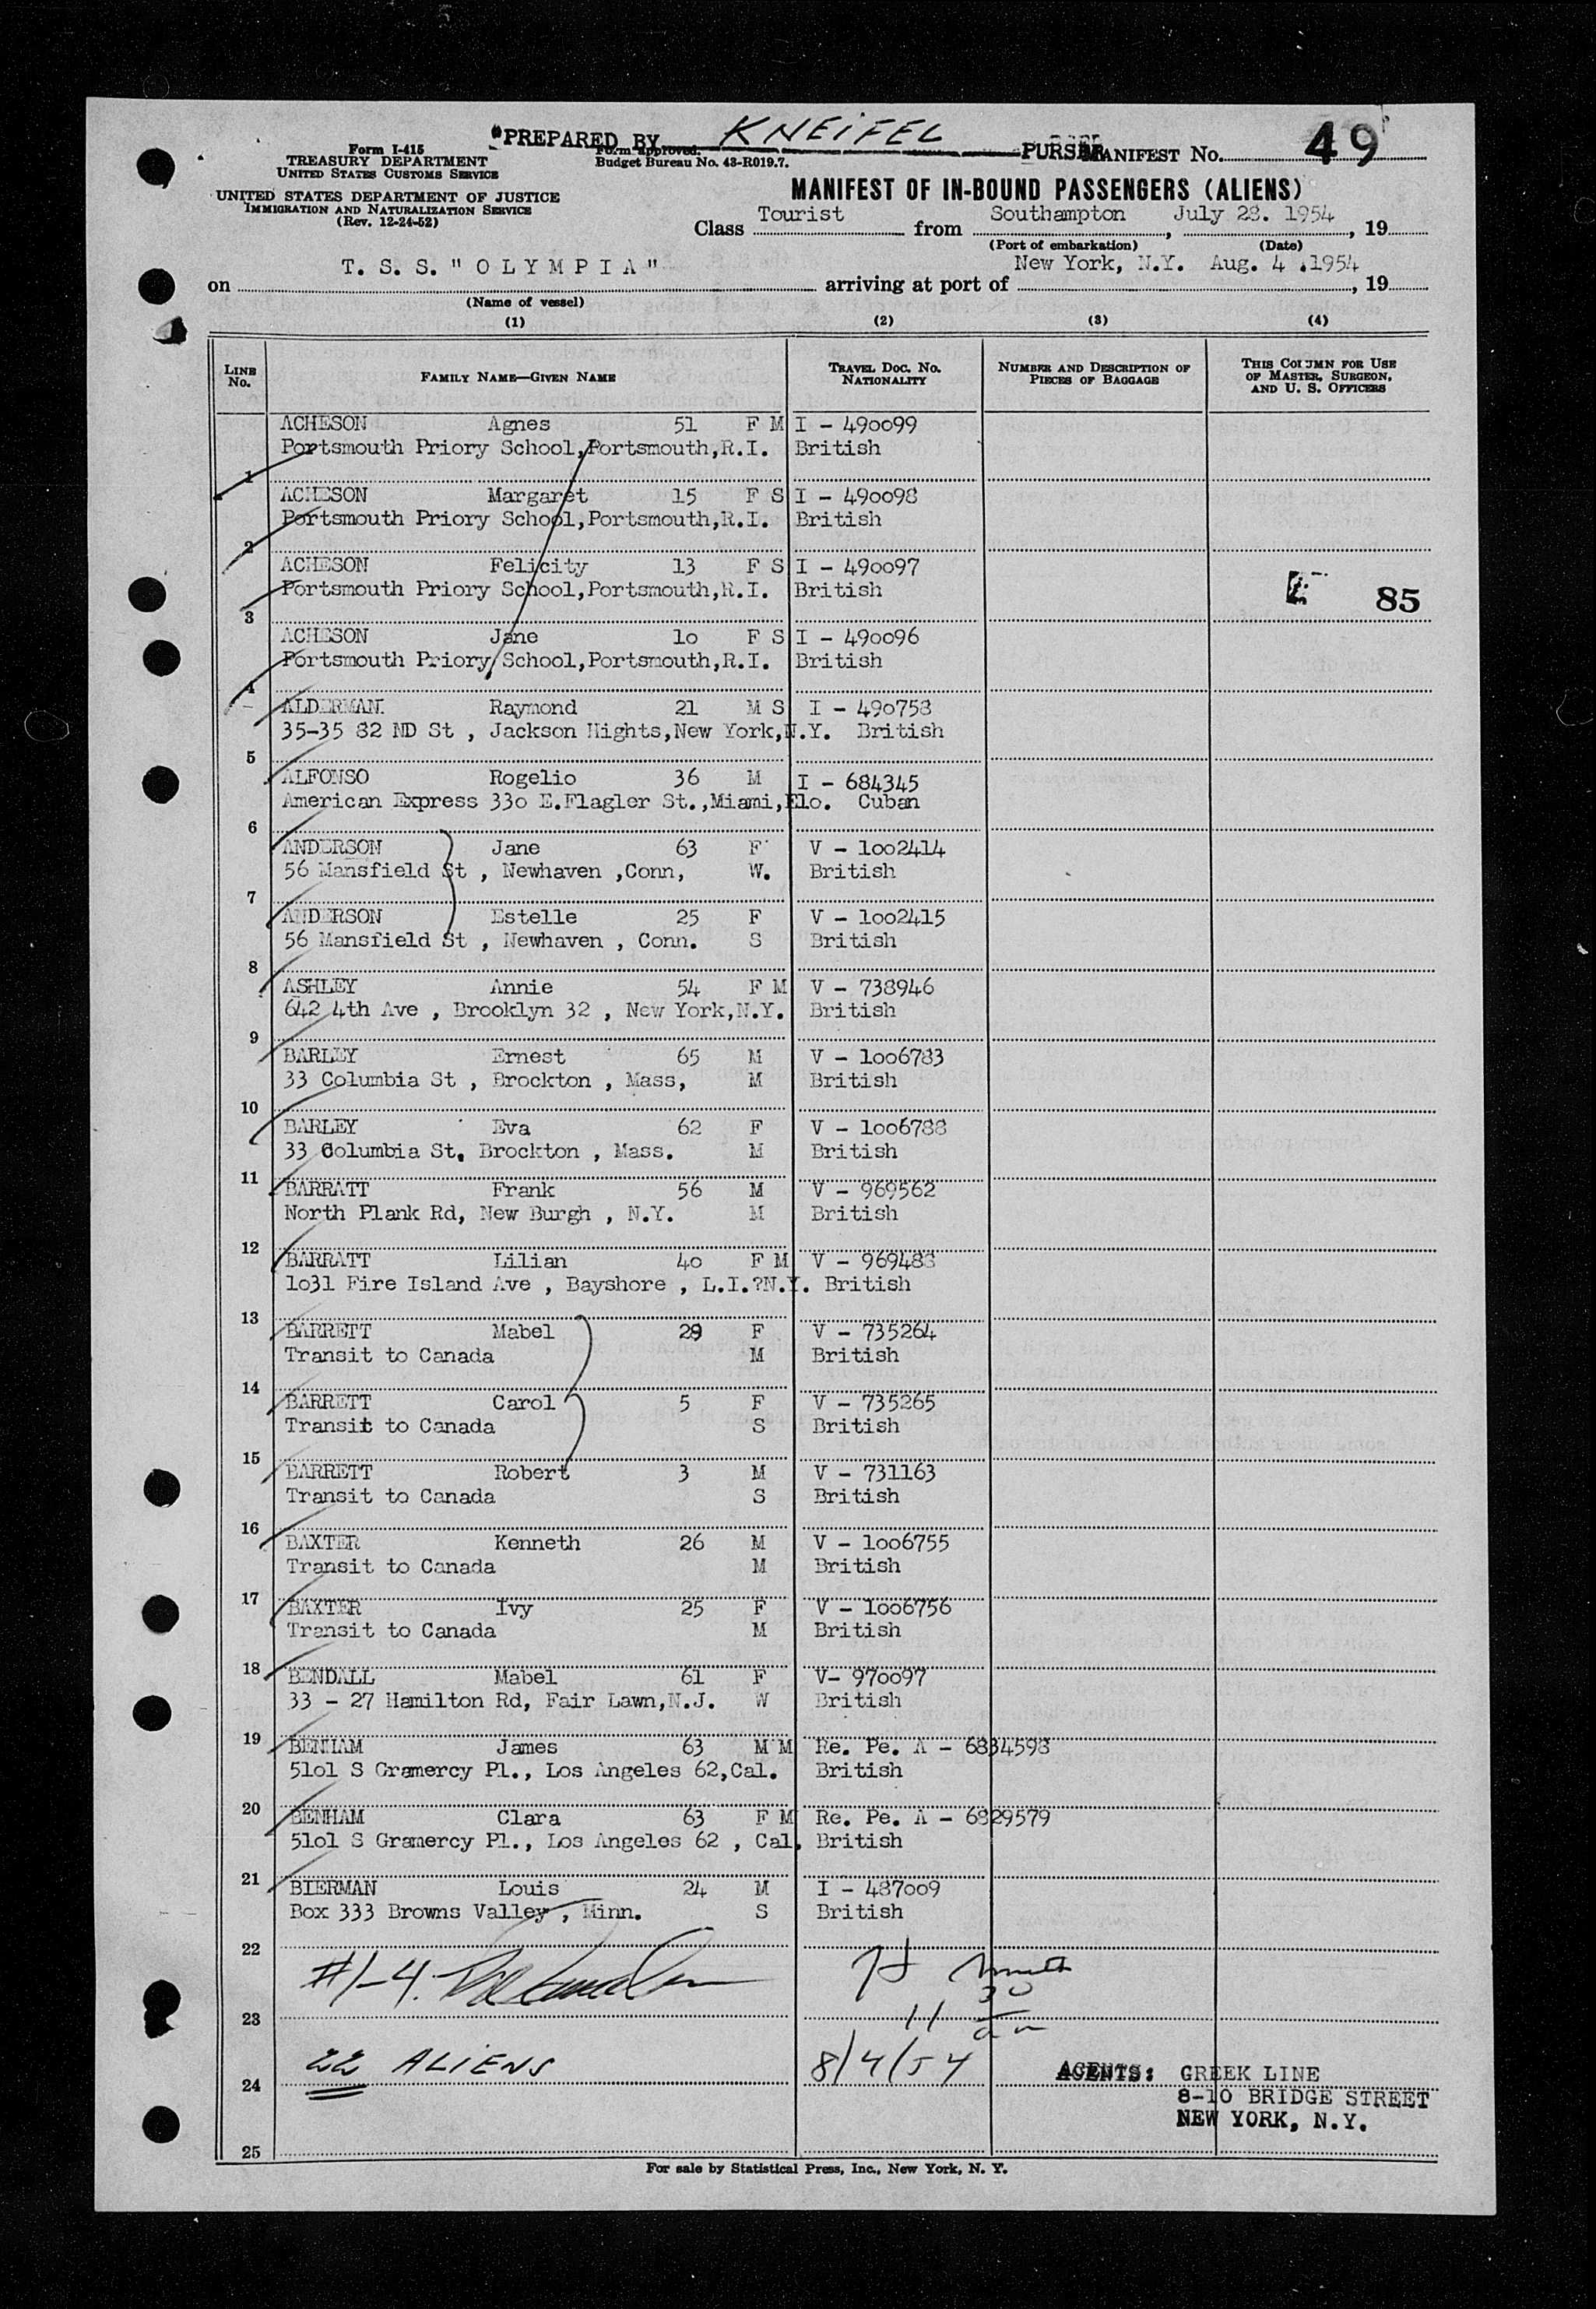 "PREPARED BY KNEIFEL PURSER
Form I-415
TREASURY DEPARTMENT
UNITED STATES CUSTOMS SERVICE
UNITED STATES DEPARTMENT OF JUSTICE
IMMIGRATION AND NATURALIZATION SERVICE
(Rev. 12-24-52)
Form approved.
Budget Bureau No. 43-R019.7.
MANIFEST No. 49
MANIFEST OF IN-BOUND PASSENGERS (ALIENS)
Class Tourist from Southampton, July 28. 1954, 19
(Port of embarkation) (Date)
on T. S. S. "OLYMPIA" arriving at port of New York, N.Y. Aug. 4 .1954, 19
(Name of vessel)
(1) (2) (3) (4)
LINE No. FAMILY NAME—GIVEN NAME TRAVEL DOC. NO. NATIONALITY NUMBER AND DESCRIPTION OF PIECES OF BAGGAGE THIS COLUMN FOR USE OF MASTER, SURGEON, AND U. S. OFFICERS
ACHESON Agnes 51 F M I - 490099
Portsmouth Priory School,Portsmouth,R.I. British
1
ACHESON Margaret 15 F S I - 490098
Portsmouth Priory School,Portsmouth,R.I. British
2
ACHESON Felicity 13 F S I - 490097
Portsmouth Priory School,Portsmouth,R.I. British
85
3
ACHESON Jane 1o F S I - 490096
Portsmouth Priory School,Portsmouth,R.I. British
4
ALDERMAN Raymond 21 M S I - 490758
35-35 82 ND St , Jackson Hights,New York,N.Y. British
5
ALFONSO Rogelio 36 M I - 684345
American Express 33o E.Flagler St.,Miami,Flo. Cuban
6
ANDERSON Jane 63 F V - 1oo2414
56 Mansfield St , Newhaven ,Conn, W. British
7
ANDERSON Estelle 25 F V - 1oo2415
56 Mansfield St , Newhaven , Conn. S British
8
ASHLEY Annie 54 F M V - 738946
642 4th Ave , Brooklyn 32 , New York,N.Y. British
9
BARLEY Ernest 65 M V - 1oo6783
33 Columbia St , Brockton , Mass, M British
10
BARLEY Eva 62 F V - 1oo6788
33 Columbia St. Brockton , Mass. M British
11
BARRATT Frank 56 M V - 969562
North Plank Rd, New Burgh , N.Y. M British
12
BARRATT Lilian 4o F M V - 969488
1o31 Fire Island Ave , Bayshore , L.I.?N.Y. British
13
BARRETT Mabel 29 F V - 735264
Transit to Canada M British
14
BARRETT Carol 5 F V - 735265
Transit to Canada S British
15
BARRETT Robert 3 M V - 731163
Transit to Canada S British
16
BAXTER Kenneth 26 M V - 1oo6755
Transit to Canada M British
17
BAXTER Ivy 25 F V - 1oo6756
Transit to Canada M British
18
BENDALL Mabel 61 F V- 970097
33 - 27 Hamilton Rd, Fair Lawn,N.J. W British
19
BENHAM James 63 M M Re. Pe. A - 6834598
51o1 S Gramercy Pl., Los Angeles 62,Cal. British
20
BENHAM Clara 63 F M Re. Pe. A - 6829579
51o1 S Gramercy Pl., Los Angeles 62 , Cal. British
21
BIERMAN Louis 24 M I - 487oo9
Box 333 Browns Valley , Minn. S British
22
#1-4.
23
22 ALIENS 8/4/54
24
AGENTS: GREEK LINE
8-10 BRIDGE STREET
NEW YORK, N.Y.
25
For sale by Statistical Press, Inc., New York, N. Y.